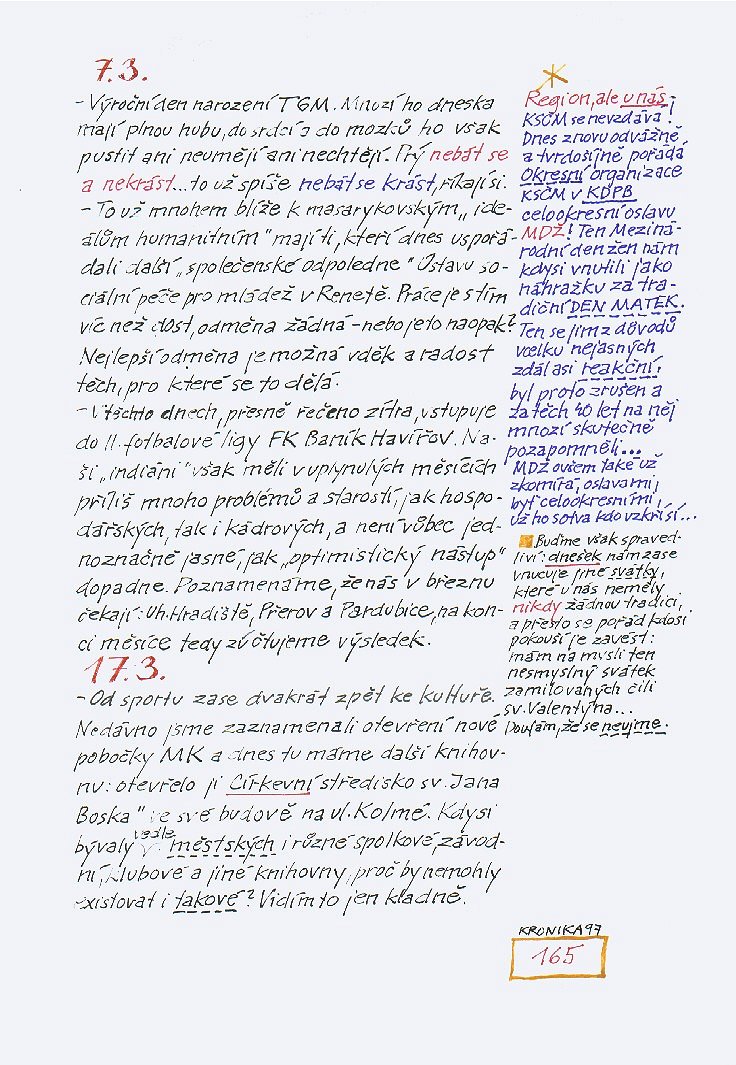 7.3.
- Výroční den narození TGM. Mnozí ho dneska
mají plnou hubu, do srdcí a do mozků ho však
pustit ani neumějí ani nechtějí. Prý nebát se
a nekrást... to už spíše nebát se krást, říkají si.
- To už mnohem blíže k masarykovským „ide-
álům humanitním" mají ti, kteří dnes uspořá-
dali další „společenské odpoledne" Ústavu so-
ciální péče pro mládež v Renetě. Práce je s tím
víc než dost, odměna žádná - nebo je to naopak?
Nejlepší odměna je možná vděk a radost
těch, pro které se to dělá.
- V těchto dnech, přesně řečeno zítra, vstupuje
do II. fotbalové ligy FK Baník Havířov. Na-
ši „indiáni" však měli v uplynulých měsících
příliš mnoho problémů a starostí, jak hospo-
dářských, tak i kádrových, a není vůbec jed-
noznačně jasné, jak „optimistický nástup"
dopadne. Poznamenáme, že nás v březnu
čekají: Uh. Hradiště, Přerov a Pardubice, na kon-
ci měsíce tedy zúčtujeme výsledek.
17.3.
- Od sportu zase dvakrát zpět ke kultuře.
Nedávno jsme zaznamenali otevření nové
pobočky MK a dnes tu máme další knihov-
nu: otevřelo ji Církevní středisko sv. Jana
Boska" ve své budově na ul. Kolmé. Kdysi
bývaly vedle městských i různé spolkové, závod-
ní, klubové a jiné knihovny, proč by nemohly
existovat i takové? Vidím to jen kladně.
Region, ale u nás;
KSČM se nevzdává!
Dnes znovu odvážně
a tvrdošíjně pořádá
Okresní organizace
KSČM v KDPB
celookresní oslavu
MDŽ! Ten Meziná-
rodní den žen nám
kdysi vnutili jako
náhražku za tra-
diční DEN MATEK.
Ten se jim z důvodů
vcelku nejasných
zdál asi reakční,
byl proto zrušen a
za těch 40 let na něj
mnozí skutečně
pozapomněli...
MDŽ ovšem také už
zkomírá, oslavami,
byť celookresními,
už ho sotva kdo vzkřísí...
Buďme však spraved-
liví: dnešek nám zase
vnucuje jiné svátky,
které u nás neměly
nikdy žádnou tradici,
a přesto se pořád kdosi
pokouší je zavést:
mám na mysli ten
nesmyslný svátek
zamilovaných čili
sv. Valentýna...
Doufám, že se neujme.
KRONIKA 97
165